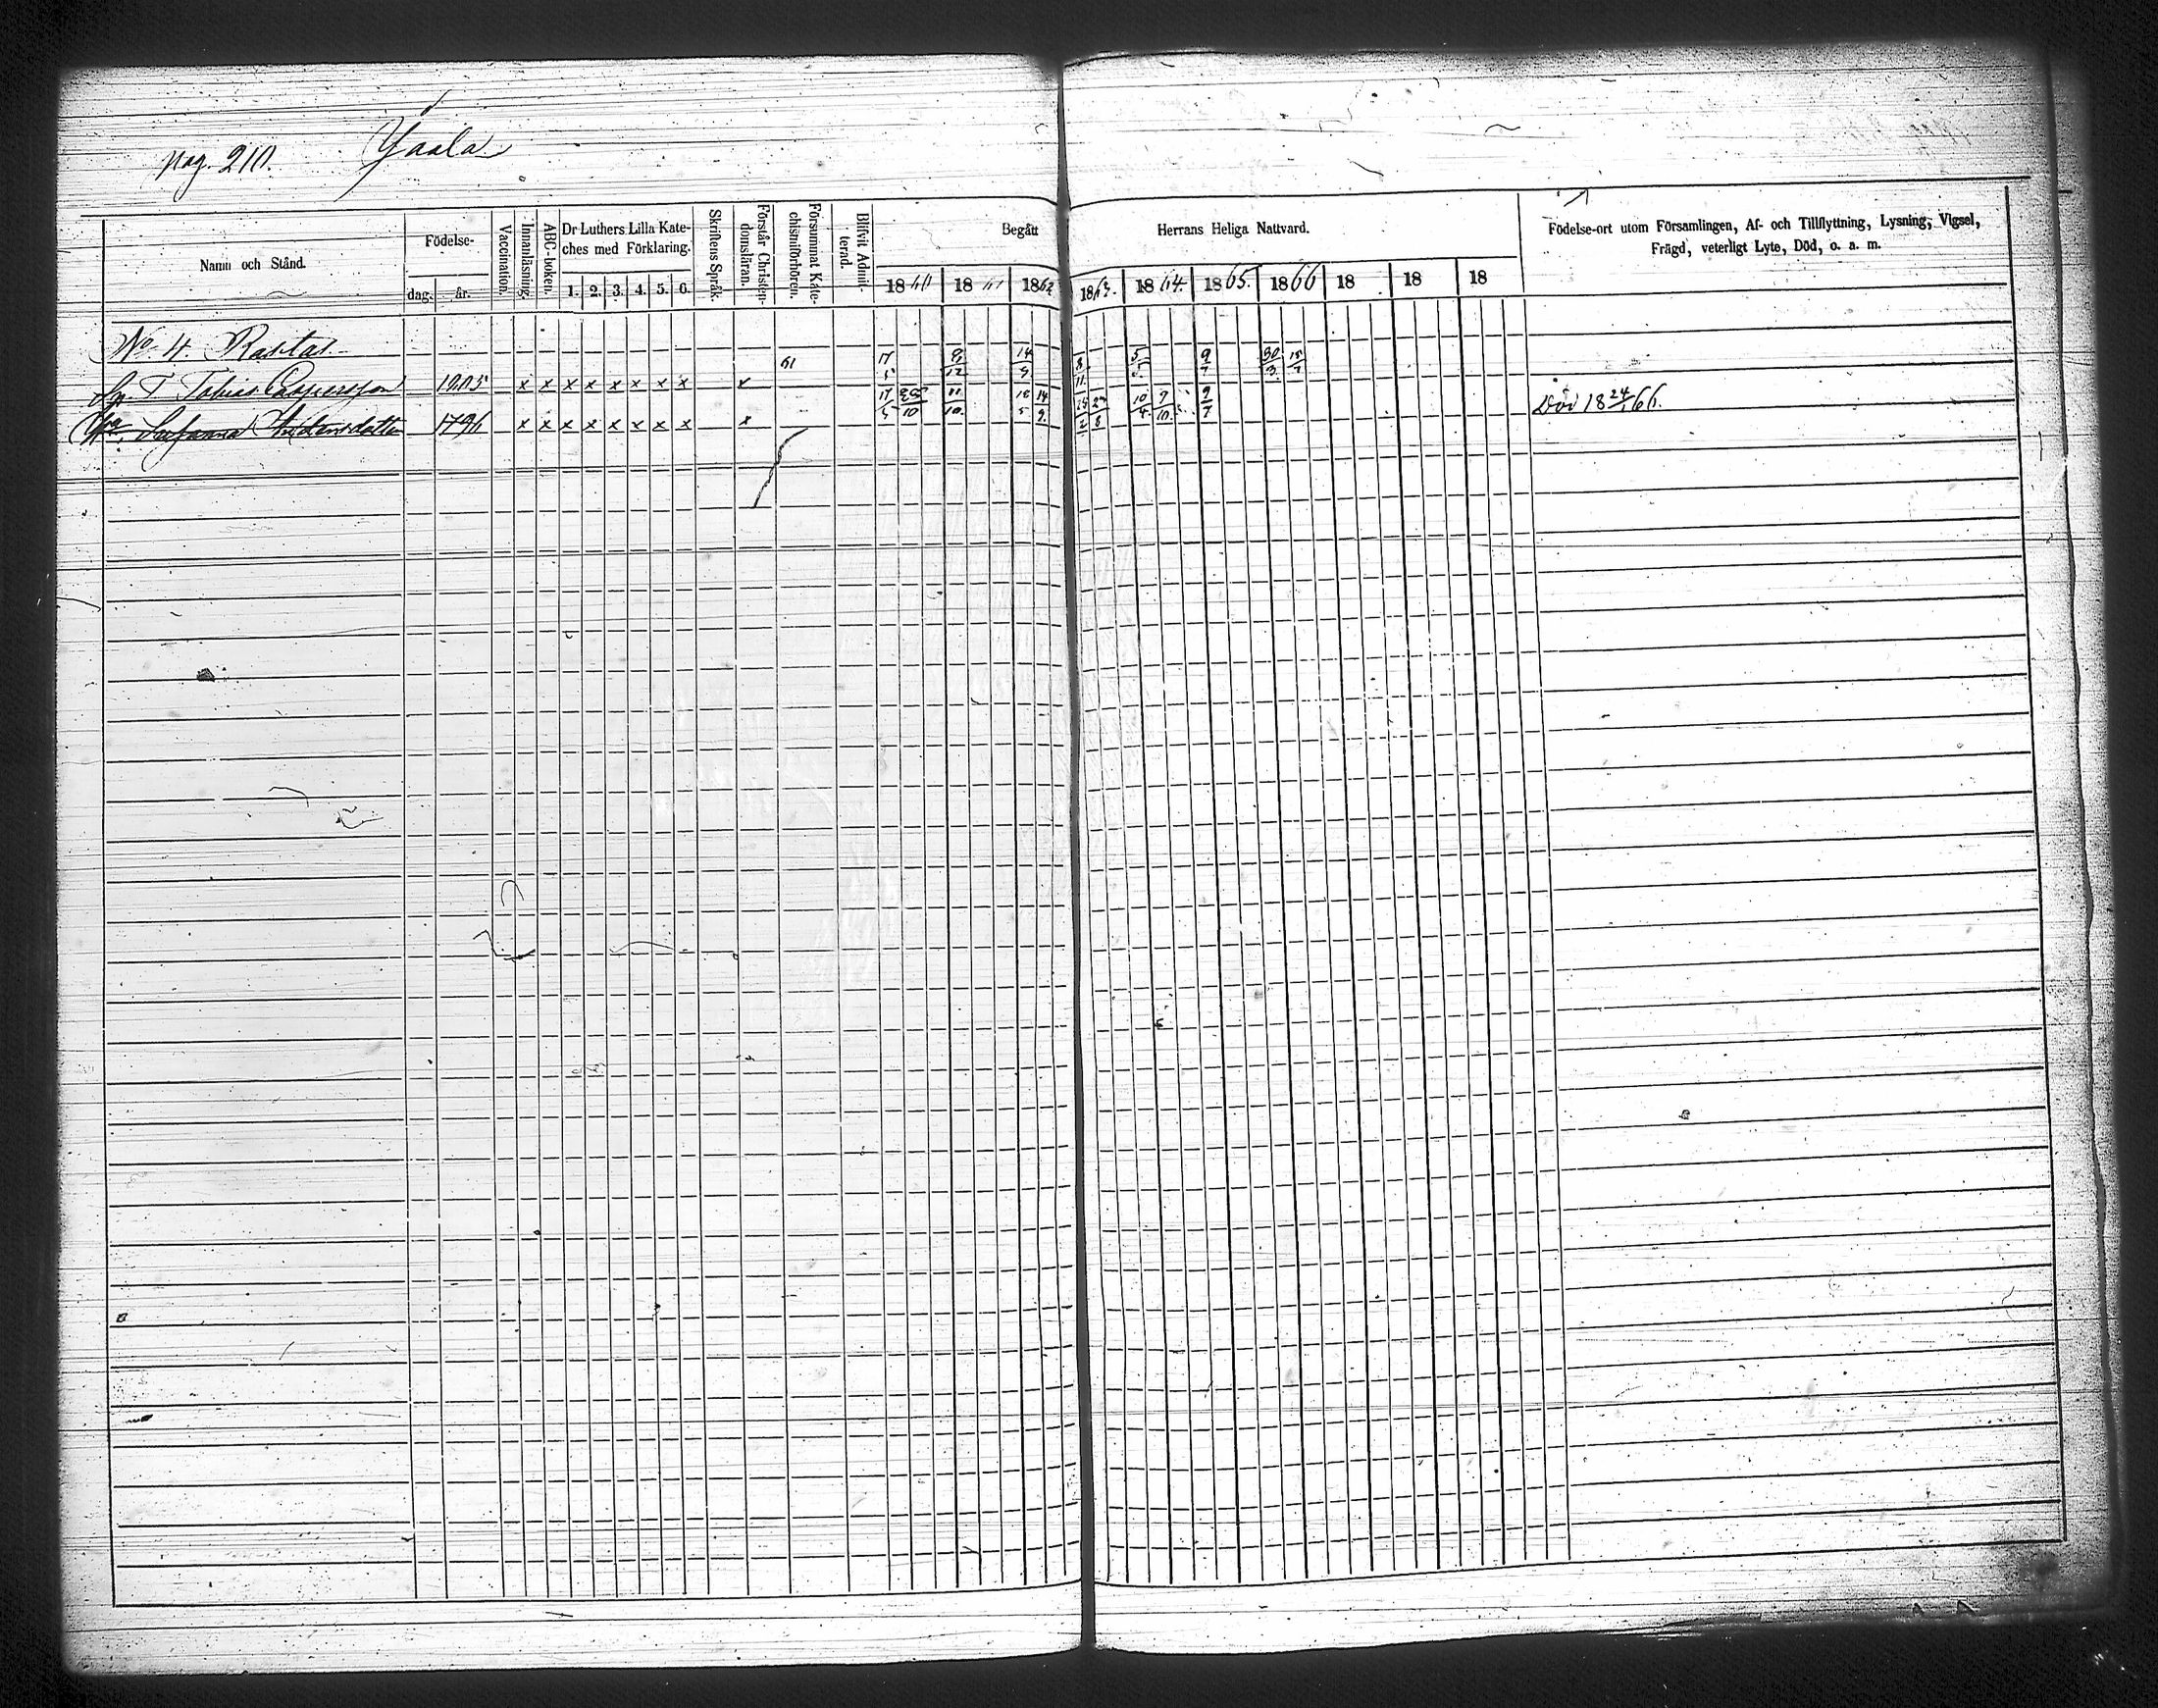 pag. 210. Yaala
Namn och Stånd.
Födelse-
dag. år.
Vaccination.
Innanläsning.
ABC-boken.
Dr Luthers Lilla Kate-
ches med Förklaring.
1. 2. 3. 4. 5. 6.
Skriftens Språk.
Förstår Christen-
domsläran.
Försummat Kate-
chismiförhören.
Blifvit Admit-
terad.
Begått Herrans Heliga Nattvard.
1860 1861 1862 1863. 1864. 1865. 1866 18 18 18
Födelse-ort utom Församlingen, Af- och Tillflyttning, Lysning, Vigsel,
Frägd, veterligt Lyte, Död, o. a. m.
No 4. Rastas
61 17/5 9/12 14/9 8/11 5/5 9/7 30/3 15/7
Tobias Caspersson 1805 x x x x x x x x x
17/5 10 11/10 18/5 14/9 25/2 8 10/4 9/10 9/7 Död 18 24/ 66.
Susanna 1796 x x x x x x x x x